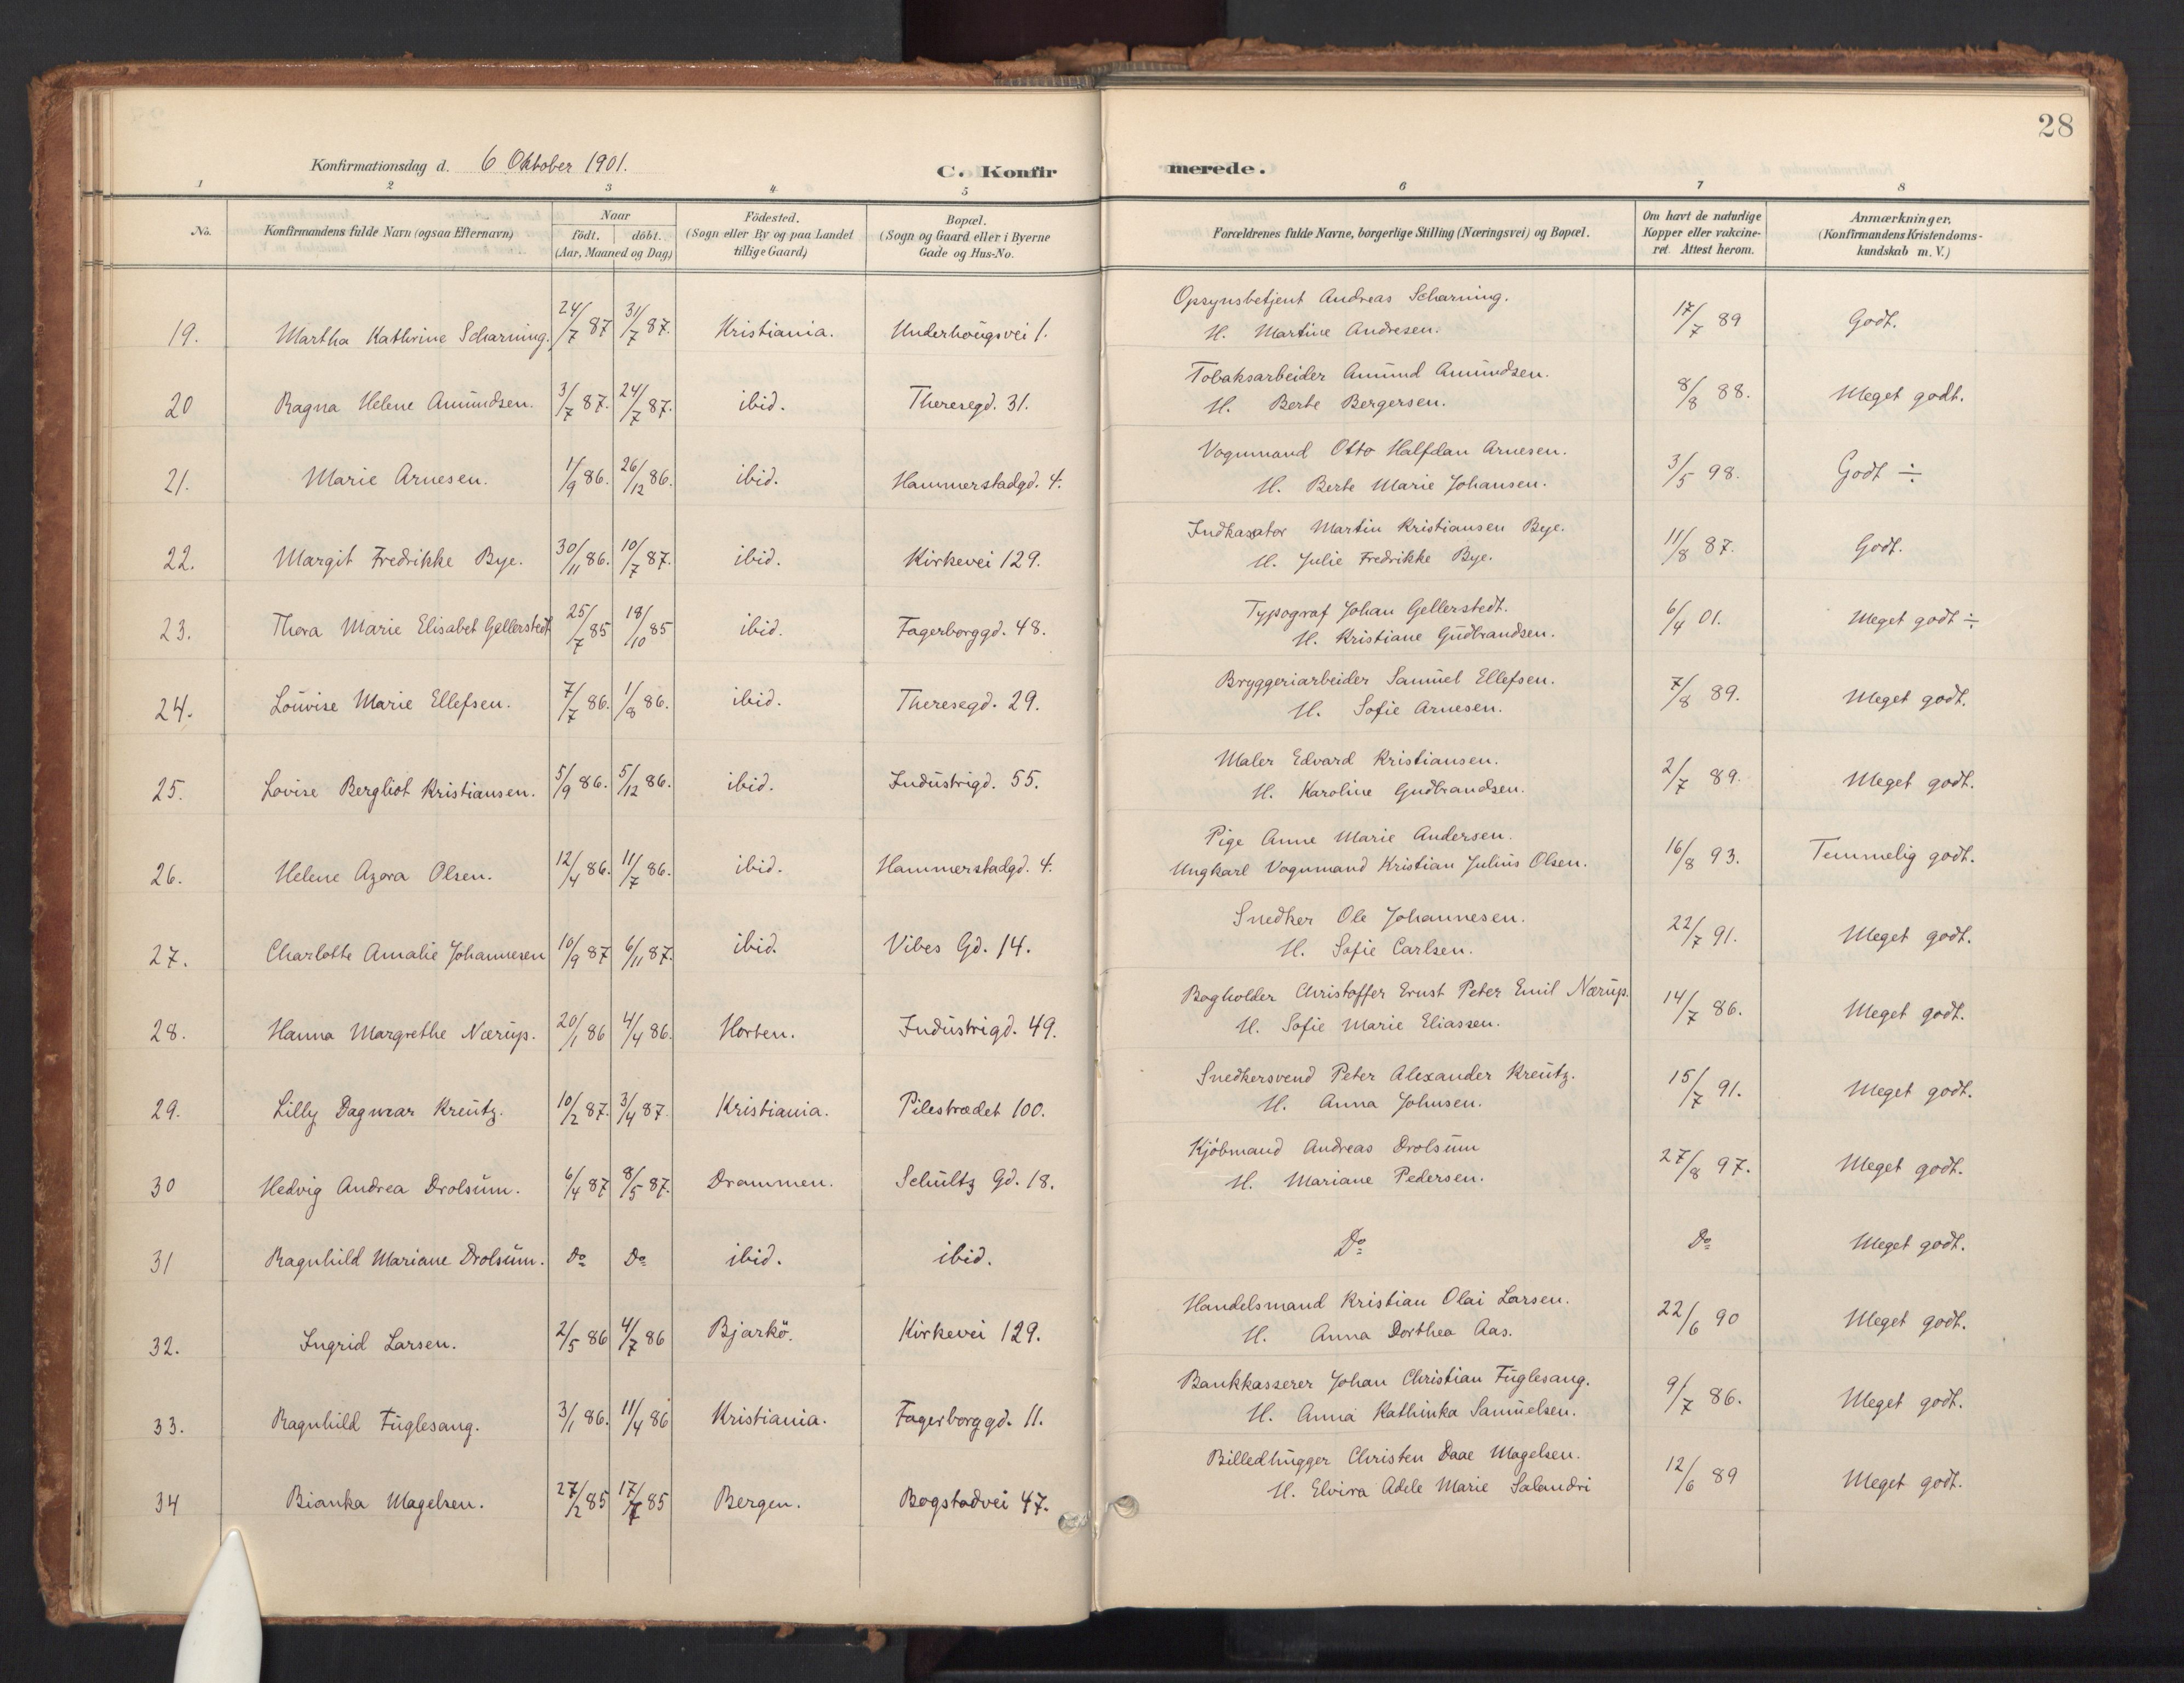 28
Konfirmationsdag d. 6 Oktober 1901.
C. Konfirmerede.
1 2 3 4 5 6 7 8
No.
Konfirmandens fulde Navn (ogsaa Efternavn)
Naar
födt. döbt.
(Aar, Maaned og Dag)
Födested.
(Sogn eller By og paa Landet
tillige Gaard)
Bopæl.
(Sogn og Gaard eller i Byerne
Gade og Hus-No.
Forældrenes fulde Navne, borgerlige Stilling (Næringsvei) og Bopæl.
Om havt de naturlige
Kopper eller vakcine-
ret. Attest herom.
Anmærkninger,
(Konfirmandens Kristendoms-
kundskab m. V.)
Opsynsbetjent Andreas Scharning.
19. Martha Kathrine Scharning. 24/7 87 31/7 87. Kristiania. Underhougsvei 1. H. Martine Andresen. 17/7 89 Godt.
Tobaksarbeider Amund Amundsen.
20 Ragna Helene Amundsen. 3/7 87. 24/7 87. ibid. Theresegd. 31. H. Berte Bergersen. 8/8 88. Meget godt.
Vognmand Otto Halfdan Arnesen.
21. Marie Arnesen. 1/9 86. 26/12 86. ibid. Hammerstadgd. 4. H. Berte Marie Johansen. 3/5 98. Godt ÷
Indkasator Martin Kristiansen Bye.
22. Margit Fredrikke Bye. 30/11 86. 10/7 87. ibid. Kirkevei 129. H. Julie Fredrikke Bye. 11/8 87. Godt.
Typograf Johan Gellerstedt.
23. Thora Marie Elisabet Gellerstedt 25/7 85 18/10 85 ibid. Fagerborggd. 48. H. Kristiane Gudbrandsen. 6/4 01. Meget godt ÷
Bryggeriarbeider Samuel Ellefsen.
24. Louvise Marie Ellefsen. 7/7 86. 1/8 86. ibid. Theresegd. 29. H. Sofie Arnesen. 7/8 89. Meget godt.
Maler Edvard Kristiansen.
25. Lovise Bergliot Kristiansen. 5/9 86. 5/12 86. ibid. Industrigd. 55. H. Karoline Gudbrandsen. 2/7 89. Meget godt.
Pige Anne Marie Andersen.
26. Helene Azora Olsen. 12/4 86. 11/7 86. ibid. Hammerstadgd. 4. Ungkarl Vognmand Kristian Julius Olsen. 16/8 93. Temmelig godt.
Snedker Ole Johannesen.
27. Charlotte Amalie Johannesen 10/9 87 6/11 87. ibid. Vibes Gd. 14. H. Sofie Carlsen. 22/7 91. Meget godt.
Bogholder Christoffer Ernst Peter Emil Nærup.
28. Hanna Margrethe Nærup. 20/1 86 4/4 86. Horten. Industrigd. 49. H. Sofie Marie Eliassen. 14/7 86. Meget godt.
Snedkersvend Peter Alexander Kreutz.
29. Lilly Dagmar Kreutz. 10/2 87. 3/4 87. Kristiania. Pilestrædet 100. H. Anna Johnsen. 15/7 91. Meget godt.
Kjöbmand Andreas Drolsum
30 Hedvig Andrea Drolsum. 6/4 87 8/5 87. Drammen. Schultz Gd. 18. H. Mariane Pedersen. 27/8 97. Meget godt.
31 Ragnhild Mariane Drolsum. Do Do ibid. ibid. Do Do Meget godt.
Handelsmand Kristian Olai Larsen.
32. Ingrid Larsen. 2/5 86 4/7 86 Bjarkö. Kirkevei 129. H. Anna Dorthea Aas. 22/6 90 Meget godt.
Bankkasserer Johan Christian Fuglesang.
33. Ragnhild Fuglesang. 3/1 86. 11/4 86 Kristiania. Fagerborggd. 11. H. Anna Kathinka Samuelsen. 9/7 86. Meget godt.
Billedhugger Christen Daae Magelsen.
34 Bianka Magelsen. 27/2 85 17/7 85 Bergen. Bogstadvei 47. H. Elvira Adele Marie Salandri 12/6 89 Meget godt.